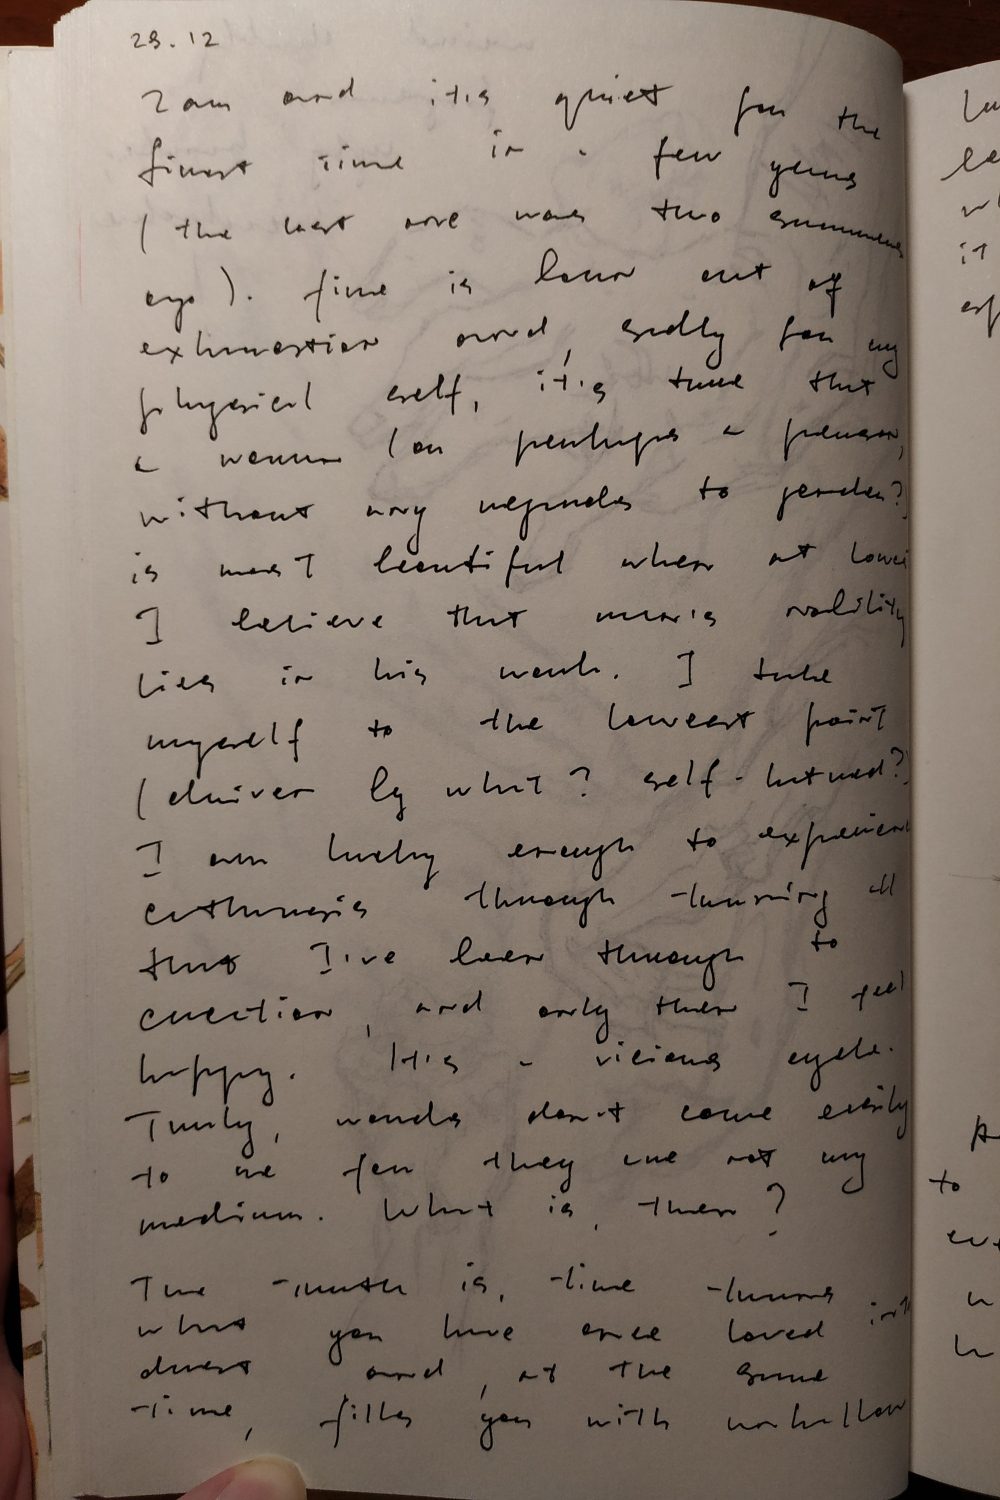 29.12
2am and it's quiet for the
first time in a few years
(the last one was two summers
ago). fire is born out of
exhaustion and, sadly for my
physical self, it's true that
a woman (or perhaps a person,
without any regards to gender?)
is most beautiful when at
I believe that man's nobility
lies in his work. I take
myself to the lowest point
(driven by what? self-hatred?)
I am lucky enough to experience
catharsis through turning all
that I've been through to
creation, and only then I feel
happy. It's a vicious cycle.
Truly, words don't come easily
to me for they are not my
medium. What is, then?
The truth is, time turns
what you have once loved into
dust and, at the same
time, fills you with
to